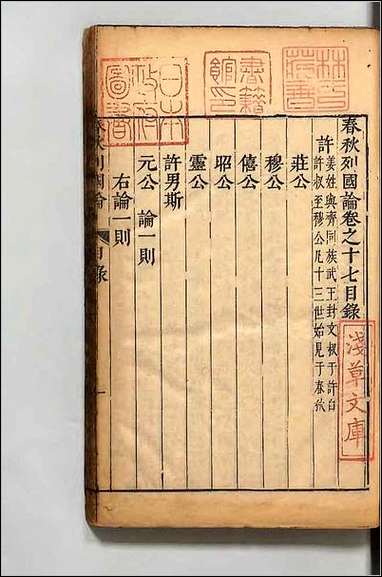 春秋列國論卷之十七目錄
許姜姓與齊同族武王封文叔于許自
許叔至穆公凡十三世始見于春秋
莊公
穆公
僖公
昭公
靈公
許男斯
元公 論一則
右論一則
春秋列國論 目錄 一
林氏藏書
書籍館印
日本政府圖書
淺草文庫